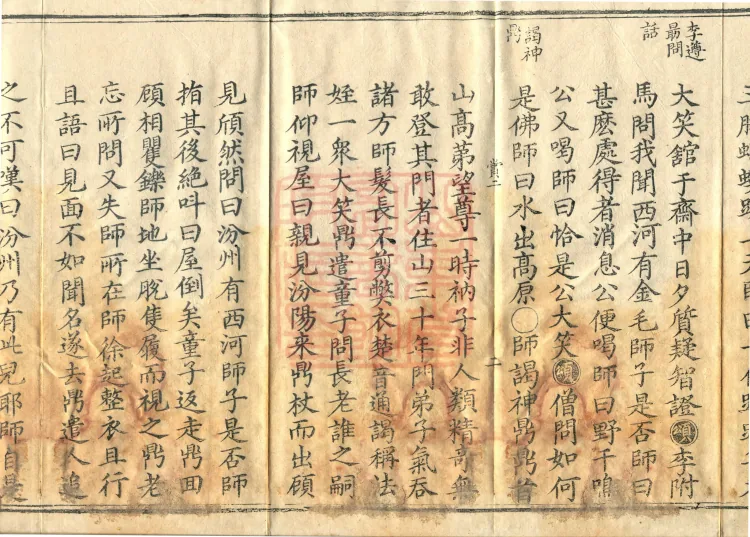 李遵
最問
話
大笑舘于齋中日夕質疑智證頌李附
馬問我聞西河有金毛師子是否師曰
甚麽處得者消息公便喝師曰野干鳴
公又喝師曰恰是公大笑頌僧問如何
謁神
鼎
是佛師曰水出高原○師謁神鼎鼎首
賞二 二
山高第望尊一時衲子非人類精奇無
敢登其門者住山三十年門弟子氣吞
諸方師髮長不剪獘衣楚音通謁稱法
姪一衆大笑鼎遣童子問長老誰之嗣
師仰視屋曰親見汾陽来鼎杖而出顧
見頎然問曰汾州有西河師子是否師
指其後絶叫曰屋倒矣童子返走鼎回
顧相矍鑠師地坐脫隻履而視之鼎老
忘所問又失師所在師徐起整衣且行
且語曰見面不如聞名遂去鼎遣人追
之不可嘆曰汾州乃有此兒耶師自是